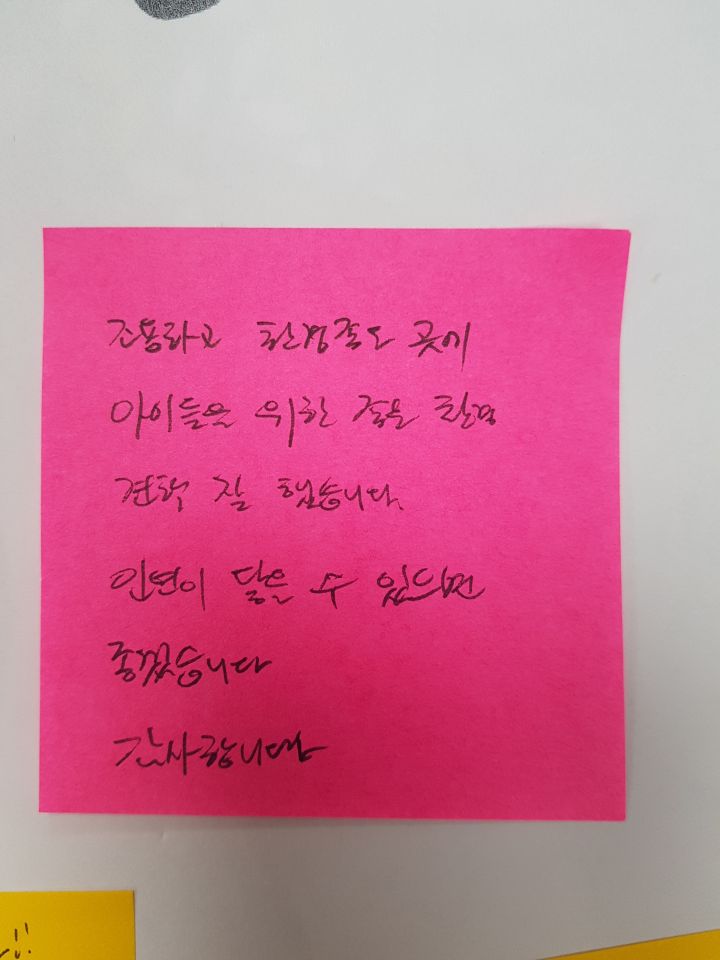 조용하고 환경좋은 곳에
아이들을 위한 좋은 환경
견학 잘 했습니다.
인연이 닿을 수 있으면
좋겠습니다
감사합니다
!!